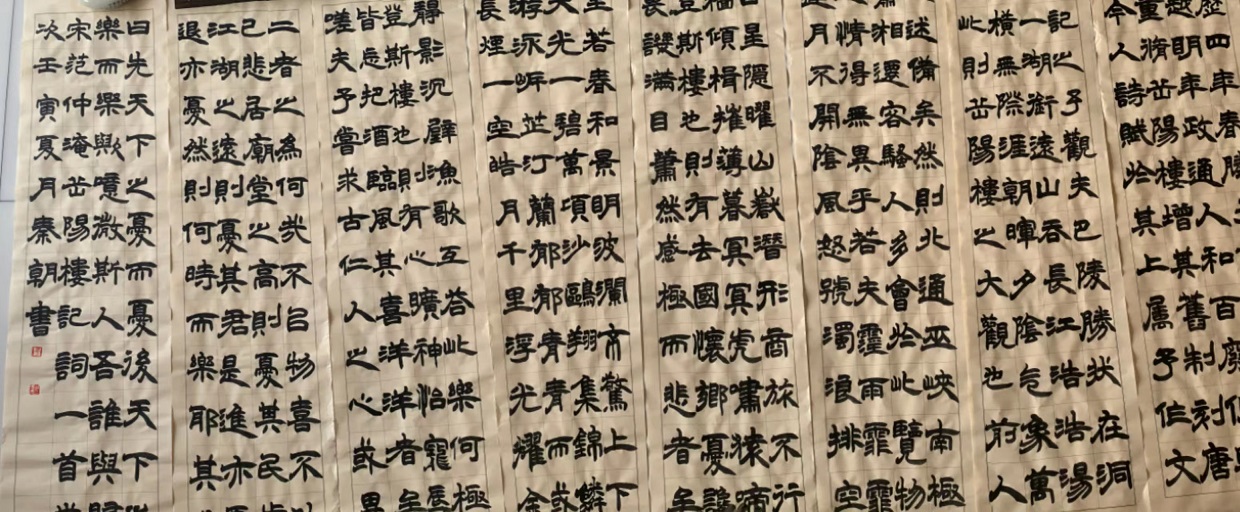 歷四年春滕
越明年政通人和百廢
重脩岳陽樓增其舊制刻唐
今人詩賦於其上属予作文
記之予觀夫巴陵勝狀在洞
一湖銜遠山吞長江浩浩湯
橫無際涯朝暉夕陰气象萬
此則岳陽樓之大觀也前人
述備矣然則北通巫峽南極
湘遷客騷人多會於此覽物
情得無異乎若夫霪雨霏霏
月不開陰風怒號濁浪排空
日星隱曜山嶽潛形商旅不行
檣傾楫摧薄暮冥冥虎嘯猿啼
登斯樓也則有去國懷鄉憂讒
畏譏滿目蕭然感極而悲者矣
至若春和景明波瀾不驚上下
天光一碧萬頃沙鷗翔集錦鱗
游泳岸芷汀蘭郁郁青青而或
長煙一空皓月千里浮光耀金
靜影沉璧漁歌互答此樂何極
登斯樓也則有心曠神怡寵辱
皆忘把酒臨風其喜洋洋者矣
嗟夫予嘗求古仁人之心或異
二者之為何哉不以物喜不以
己悲居廟堂之高則憂其民
江湖之遠則憂其君是進亦
退亦憂然則何時而樂耶其
曰先天下之憂而憂後天下
樂而樂歟噫微斯人吾誰與
宋范仲淹岳陽樓記詞一首
次壬寅夏月秦朝書